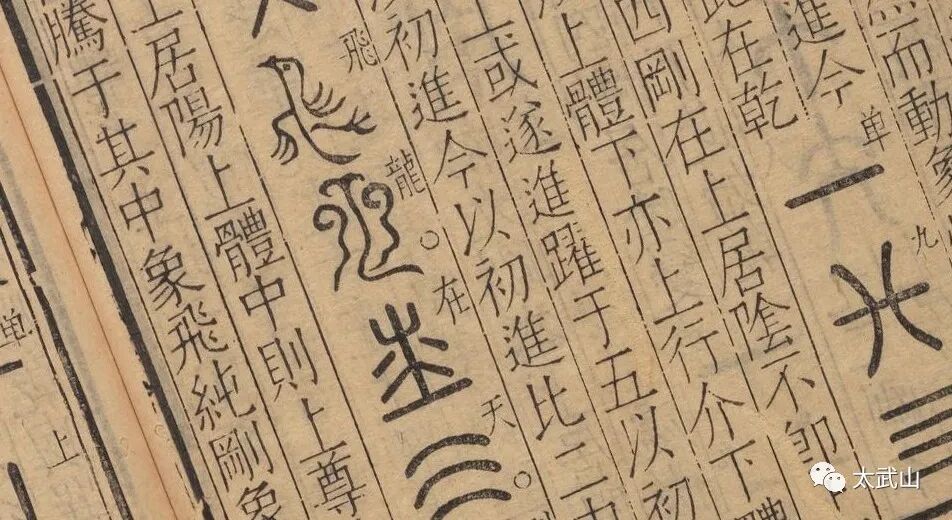 而動象
進今
此在乾
单
九
四剛在上居陰不卽
上體下亦上行介下
上或遂進躍于五以初
初進今以初進比二中
飛
龍
在
天
上居陽上體中則上尊
騰于其中象飛純剛象
单
上
太武山